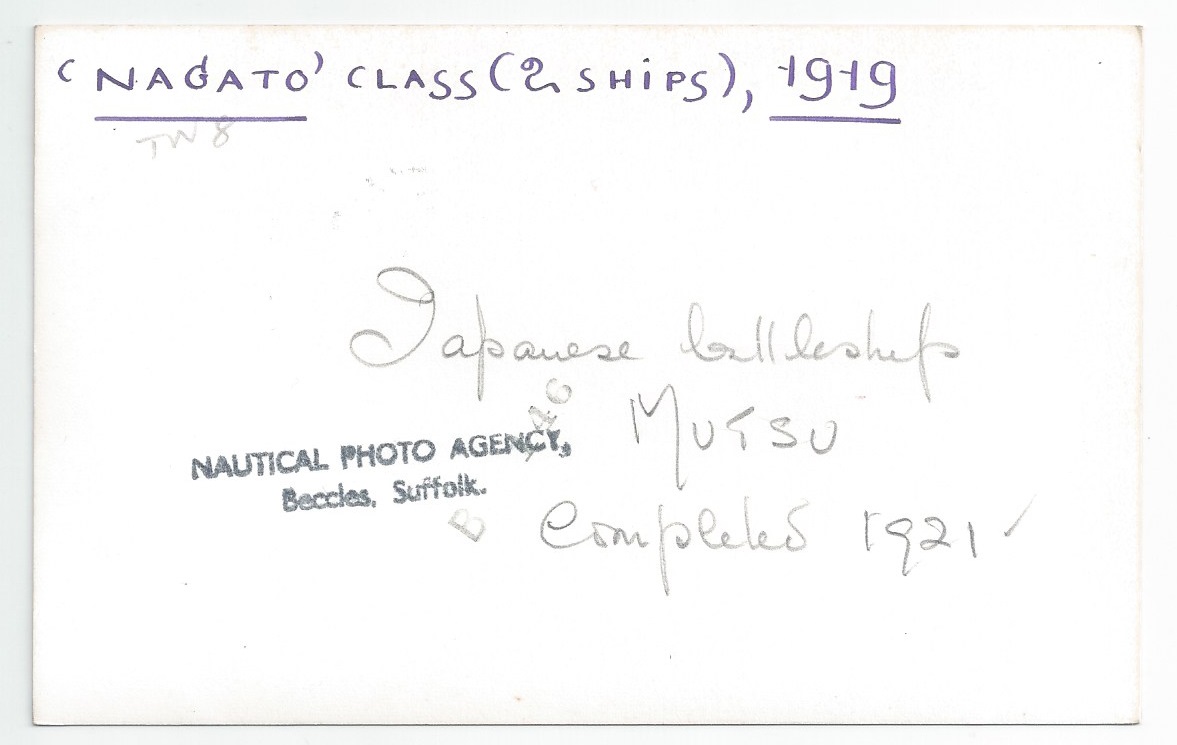 'NAGATO' CLASS (2 SHIPS), 1919
TW 8
Japanese battleships
MUTSU
NAUTICAL PHOTO AGENCY,
Beccles, Suffolk.
Completed 1921 ✓